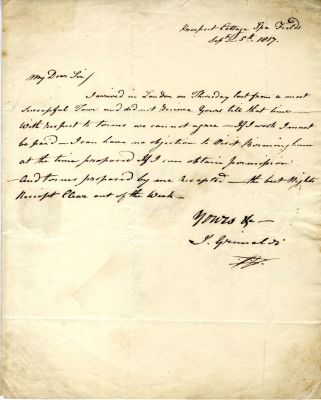 Prospect Cottage Spa Fields
Sept. 8th. 1817.
My Dear Sir/
I arrived in London on Thursday last from a most
Successful Tour and did not Receive Yours till that time –
With respect to terms we can not agree – If I work I must
be paid – I can have no objection to Visit Birmingham
at the time proposed If I can obtain permission
And terms proposed by me Accepted – the last Nights
Receipt Clear out of the Week –
Yours &c –
J. Grimaldi